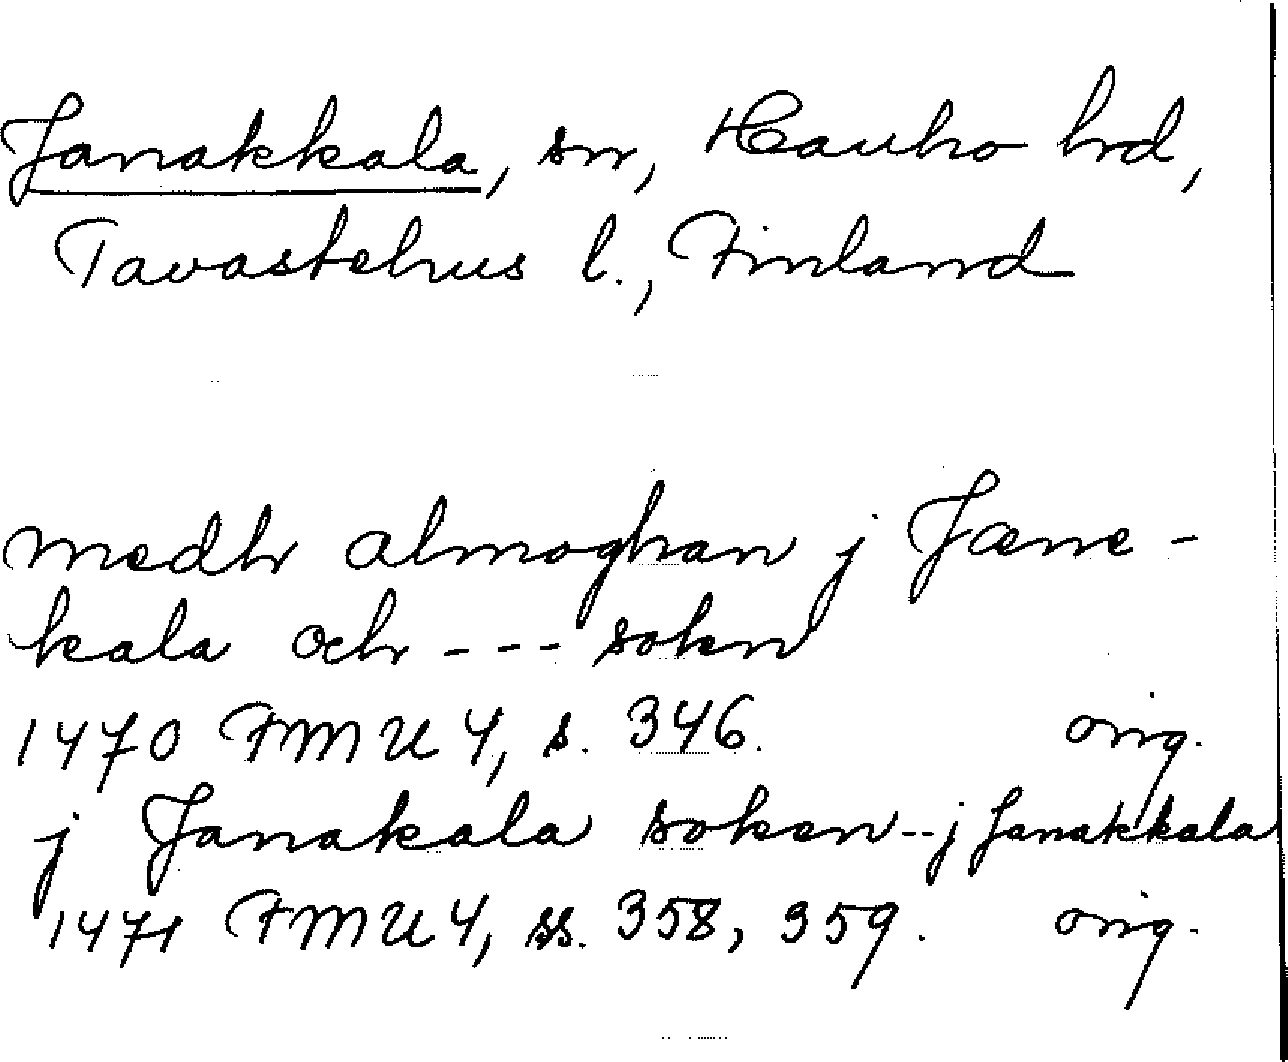 Janakkala, sn, Hauho hrd,
Tavastehus l., Finland
medh almoghan j Jæne-
kala och --- sokn
1470 FMU 4, s. 346. orig.
j Janakala soken -- j Janakkala
1471 FMU 4, ss. 358, 359. orig.